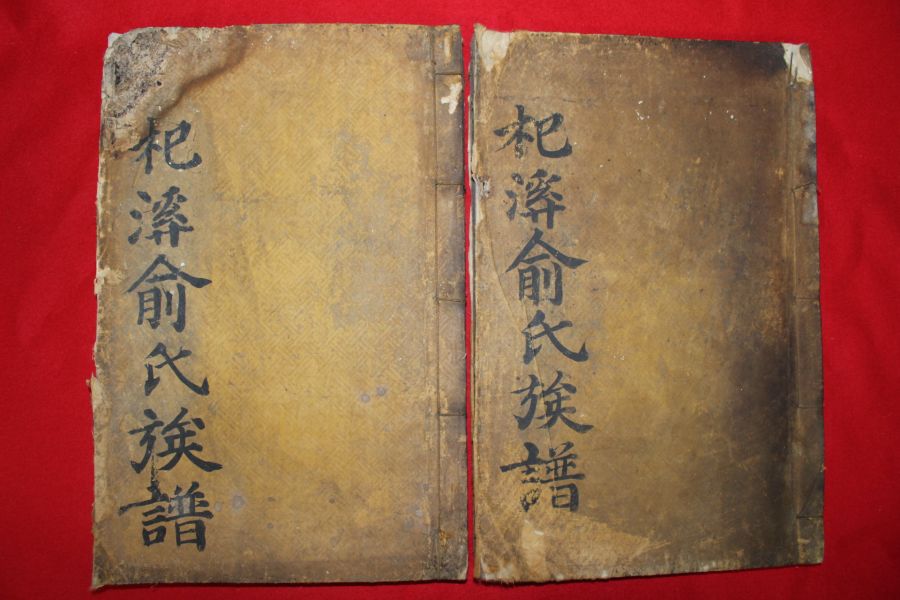 杞溪兪氏族譜
杞溪兪氏族譜